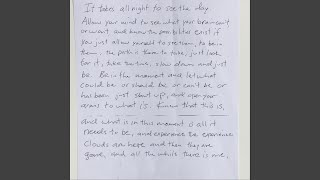 It takes all night to see the day
Allow your mind to see what your brain can't
or want and know the possibilities exist if
you just allow yourself to see them, to be in
them, the path is there to take, just look
for it, take the turn, slow down and just
be. Be in the moment and let what
could be or should be or can't be or
has been just shut up, and open your
arms to what is. Know that this is,
and what is in this moment is all it
needs to be, and experience the experience
Clouds are here and then they are
gone, and all the while there is one,